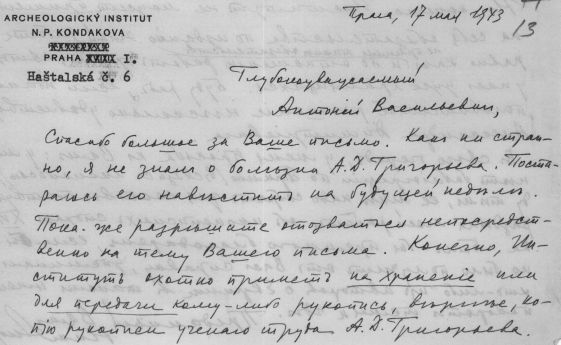 ARCHEOLOGICKÝ INSTITUT
N. P. KONDAKOVA
PRAHA I.
Haštalská č. 6
Прага, 17 мая 1943
13
Глубокоуважаемый
Антоний Васильевич,
Спасибо большое за Ваше письмо. Какъ ни стран-
но, я не зналъ о болѣзни А.Д. Григорьева. Поста-
раюсь его навѣстить на будущей недѣлѣ.
Пока же разрѣшите отозваться непосредст-
венно на тему Вашего письма. Конечно, Ин-
ститутъ охотно приметъ на храненіе или
для передачи кому-либо рукопись, вѣрнѣе, ко-
пію рукописи ученаго труда А.Д. Григорьева.